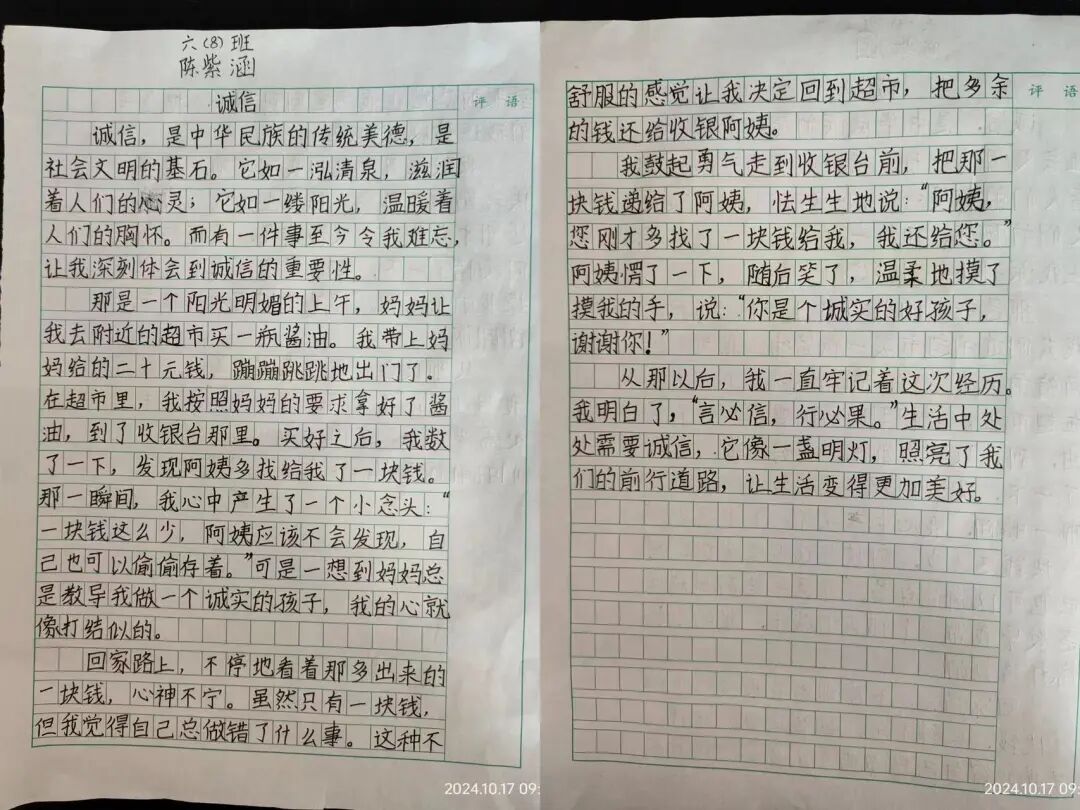 六(8)班
陈紫涵
诚信
评 语
诚信，是中华民族的传统美德，是
社会文明的基石。它如一泓清泉，滋润
着人们的心灵；它如一缕阳光，温暖着
人们的胸怀。而有一件事至今令我难忘，
让我深刻体会到诚信的重要性。
那是一个阳光明媚的上午，妈妈让
我去附近的超市买一瓶酱油。我带上妈
妈给的二十元钱，蹦蹦跳跳地出门了。
在超市里，我按照妈妈的要求拿好了酱
油，到了收银台那里。买好之后，我数
了一下，发现阿姨多找给我了一块钱。
那一瞬间，我心中产生了一个小念头：“
一块钱这么少，阿姨应该不会发现，自
己也可以偷偷存着。”可是一想到妈妈总
是教导我做一个诚实的孩子，我的心就
像打结似的。
回家路上，不停地看着那多出来的
一块钱，心神不宁。虽然只有一块钱，
但我觉得自己总做错了什么事。这种不
2024.10.17 09:
评 语
舒服的感觉让我决定回到超市，把多余
的钱还给收银阿姨。
我鼓起勇气走到收银台前，把那一
块钱递给了阿姨，怯生生地说：“阿姨，
您刚才多找了一块钱给我，我还给您。”
阿姨愣了一下，随后笑了，温柔地摸了
摸我的手，说：“你是个诚实的好孩子，
谢谢你！”
从那以后，我一直牢记着这次经历。
我明白了，“言必信，行必果。”生活中处
处需要诚信，它像一盏明灯，照亮了我
们的前行道路，让生活变得更加美好。
2024.10.17 09: